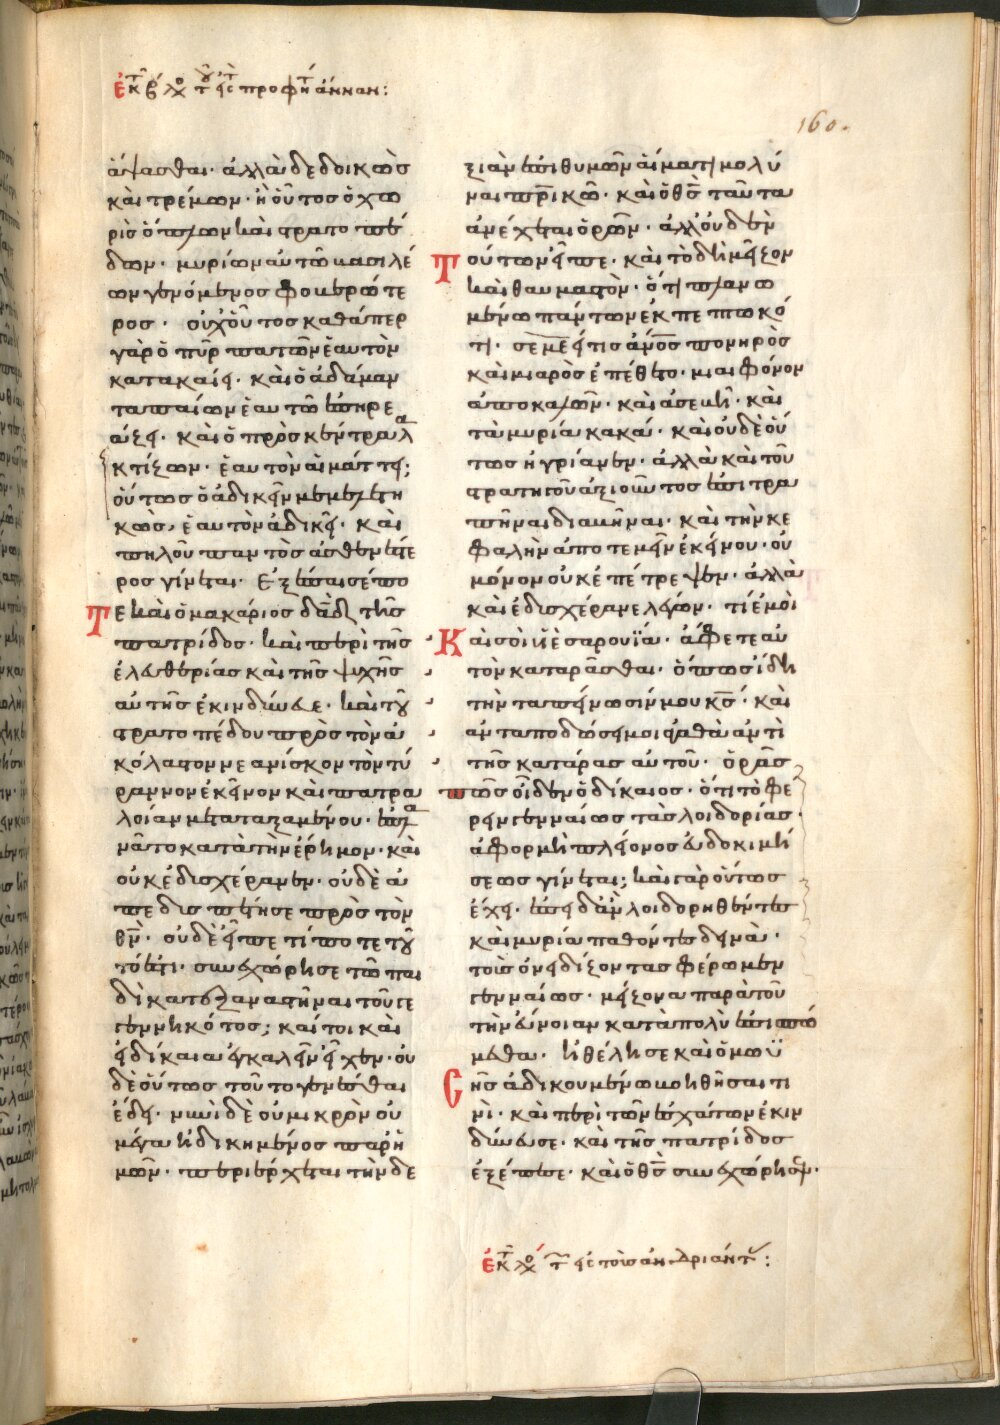 ἐκ τ β λόγ τ εἰς προφήτ ἄνναν:
160.
ἅψασθαι· ἀλλὰ δεδοικὼς
καὶ τρέμων· ἢ οὗτος ὁ χω
ρὶς ὅπλων καὶ στρατοπέ
δων· μυρίων αὐτῶ βασιλέ
ων γενόμενος φοβερώτε
ρος· οὐχ οὕτος καθάπερ
γὰρ ὁ πῦρ πατῶν ἑαυτὸν
κατακαίει· καὶ ὁ ἀδάμαν
τα παίων ἑαυτῶ ἐπηρε
άζει· καὶ ὁ πρὸς κέντρα λ
κτίζων· ἑαυτὸν αἱμάττει;
οὕτως ὁ ἀδικεῖν μεμελετη
κὼς, ἑαυτὸν ἀδικεῖ· καὶ
πηλοῦ παντὸς ἀσθενέστε
ρος γίνεται·
τε καὶ ὁ μακάριος δαδ τῆς
πατρίδος· καὶ περὶ τῆς
ἐλευθερίας καὶ τῆς ψυχῆς
αὐτῆς ἐκινδύνευε· καὶ τοῦ
στρατοπέδου πρὸς τὸν ἀ
κόλαστον νεανίσκον τὸν τύ
ραννον ἐκεῖνον καὶ πατρα
λοίαν μεταταξαμένου·
νᾶτο κατὰ τὴν ἔρημον· καὶ
οὐκ ἐδυσχέρανεν· οὐδὲ ἀ
πεδυσπέτησε πρὸς τὸν
θν· οὐδὲ εἶπε τί ποτε τοῦ
τό ἐστι· συνεχώρησε τῶ παι
δὶ κατεξαναστῆναι τοῦ γε
γεννηκότος; καίτοι καὶ
εἰ δίκαια ἐγκαλεῖν εἶχεν· οὐ
δὲ οὕτως τοῦτο γενέσθαι
ἔδει· νυνὶ δὲ οὐ μικρὸν οὐ
μέγα ἠδικημένος παρ᾽ ἡ
μῶν· περιέρχεται τὴν δε
ξιὰν ἐπιθυμῶν αἵματι μολύ
ναι πρικῶ· καὶ ὁ θς ταῦτα
ἀνέχεται ὁρῶν· ἀλλ᾽ οὐδὲν
τούτων εἶπε· καὶ τὸ δὴ μεῖζον
καὶ θαυμαστὸν· ὅτι πλανω
μένω πάντων ἐκπεπτωκό
τι· σεμεεί τις ἄνος πονηρὸς
καὶ μιαρὸς ἐπέθετο· μιαιφόνον
ἀποκαλῶν· καὶ ἀσεβῆ· καὶ
τὰ μυρία κακά· καὶ οὐδὲ οὕ
τως ἠγρίανεν· ἀλλὰ καὶ τοῦ
στρατηγοῦ ἀξιοῦντος ἐπιτρα
πῆναι διαβῆναι· καὶ τὴν κε
φαλὴν ἀποτεμεῖν ἐκείνου· οὐ
μόνον οὐκ ἐπέτρεψεν· ἀλλὰ
καὶ ἐδυσχέρανε λέγων· τί ἐμοὶ
καὶ σοὶ υἱὲ σαρουΐα· ἄφετε αὐ
τὸν καταρᾶσθαι· ὅπως ἴδη
τὴν ταπείνωσίν μου κς· καὶ
ἀνταποδώσει μοι ἀγαθὰ ἀντὶ
τῆς κατάρας αὐτοῦ· ὁρᾶς
πῶς οἶδεν ὁ δίκαιος· ὅτι τὸ φέ
ρειν γενναίως τὰς λοιδορίας·
ἀφορμὴ πλείονος εὐδοκιμή
σεως γίνεται; καὶ γὰρ οὕτως
ἔχει· ἐπειδὰν λοιδορηθέντες
καὶ μυρία παθόντες δεινὰ·
τοὺς ὀνειδίζοντας φέρωμεν
γενναίως· μείζονα παρὰ τοῦ
τὴν εὔνοιαν κατὰ πολὺ ἐπισπώ
μεθα· ἠθέλησε καὶ ὁ μωϋ
σῆς ἀδικουμένω βοηθῆσαι τι
νὶ· καὶ περὶ τῶν ἐσχάτων ἐκιν
δύνευσε· καὶ τῆς πατρίδος
ἐξέπεσε· καὶ ὁ θς συνεχώρησεν·
ἐκ τ λόγ τ εἰς τοὺς ἀνδριάντ: